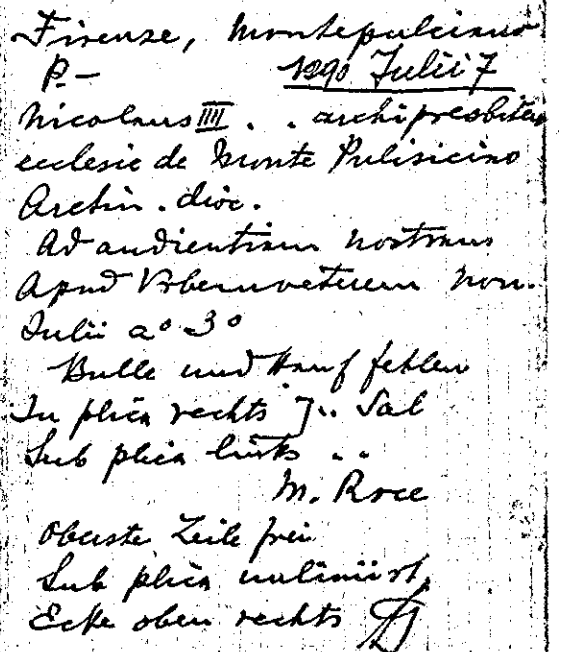 Firenze, Montepulciano
P.- 1290 Julii 7
Nicolaus IIII . . archipresbitero
ecclesie de Monte Pulisicino
Aretin. dioc.
Ad audientiam nostram
Apud Urbemveterem non.
Julii a° 3°
Bulle und Hanf fehlen
In plica rechts J.. Sal
Sub plica links ..
M. Roce
Oberste Zeile frei
Sub plica unliniirt
Ecke oben rechts